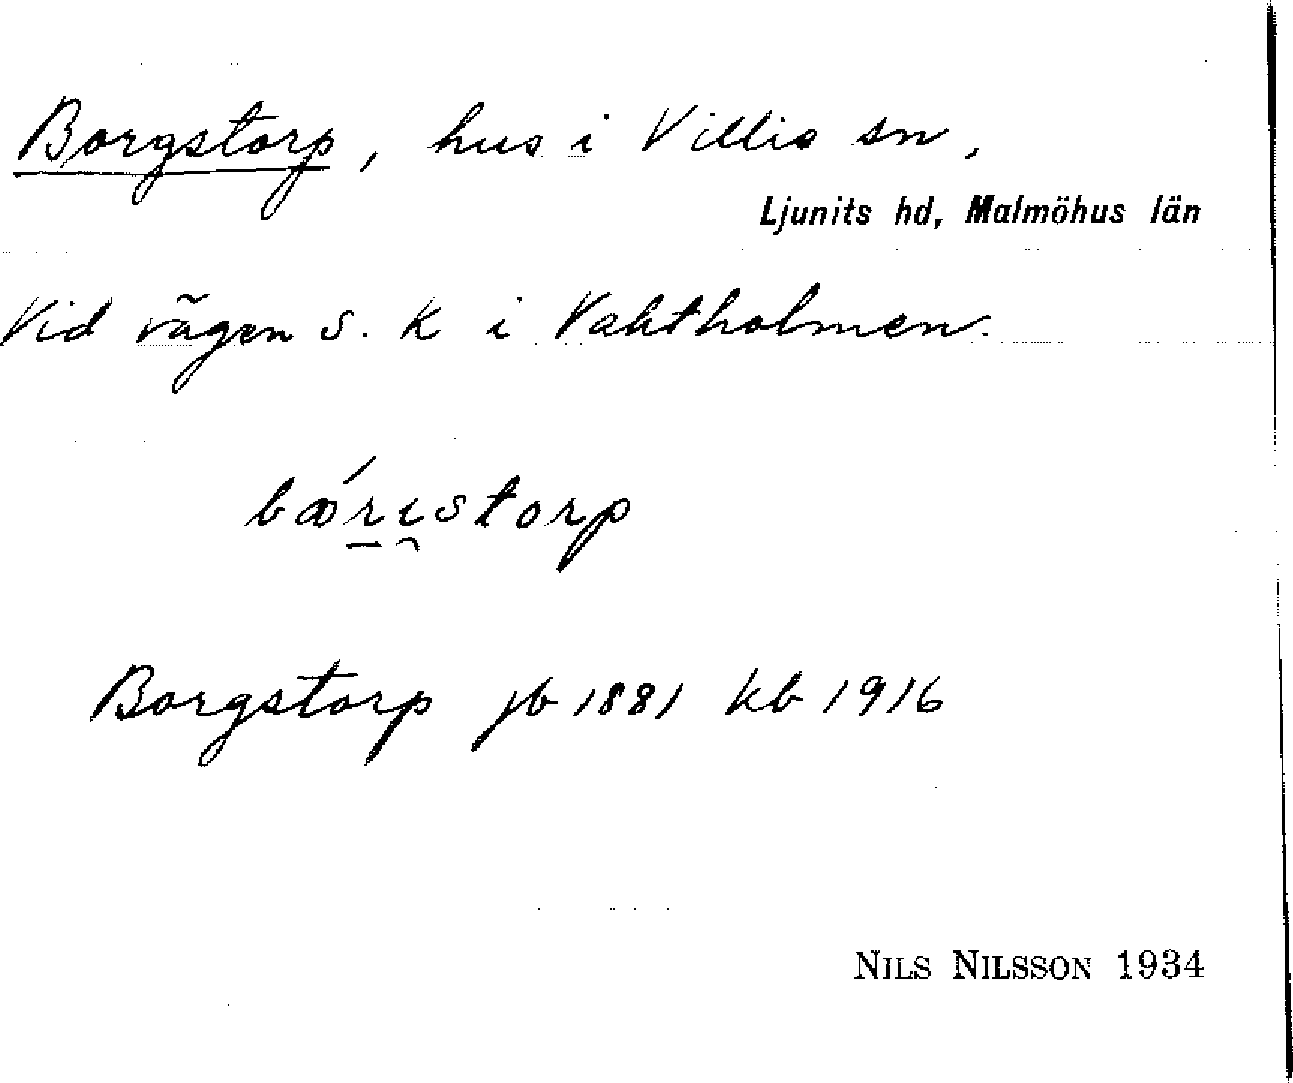 Borgstorp, hus i Villie sn,
Ljunits hd, Malmöhus län
Vid vägen s. k i Vahtholmen.
bǿri̯storp
Borgstorp jb 1881 kb 1916
NILS NILSSON 1934